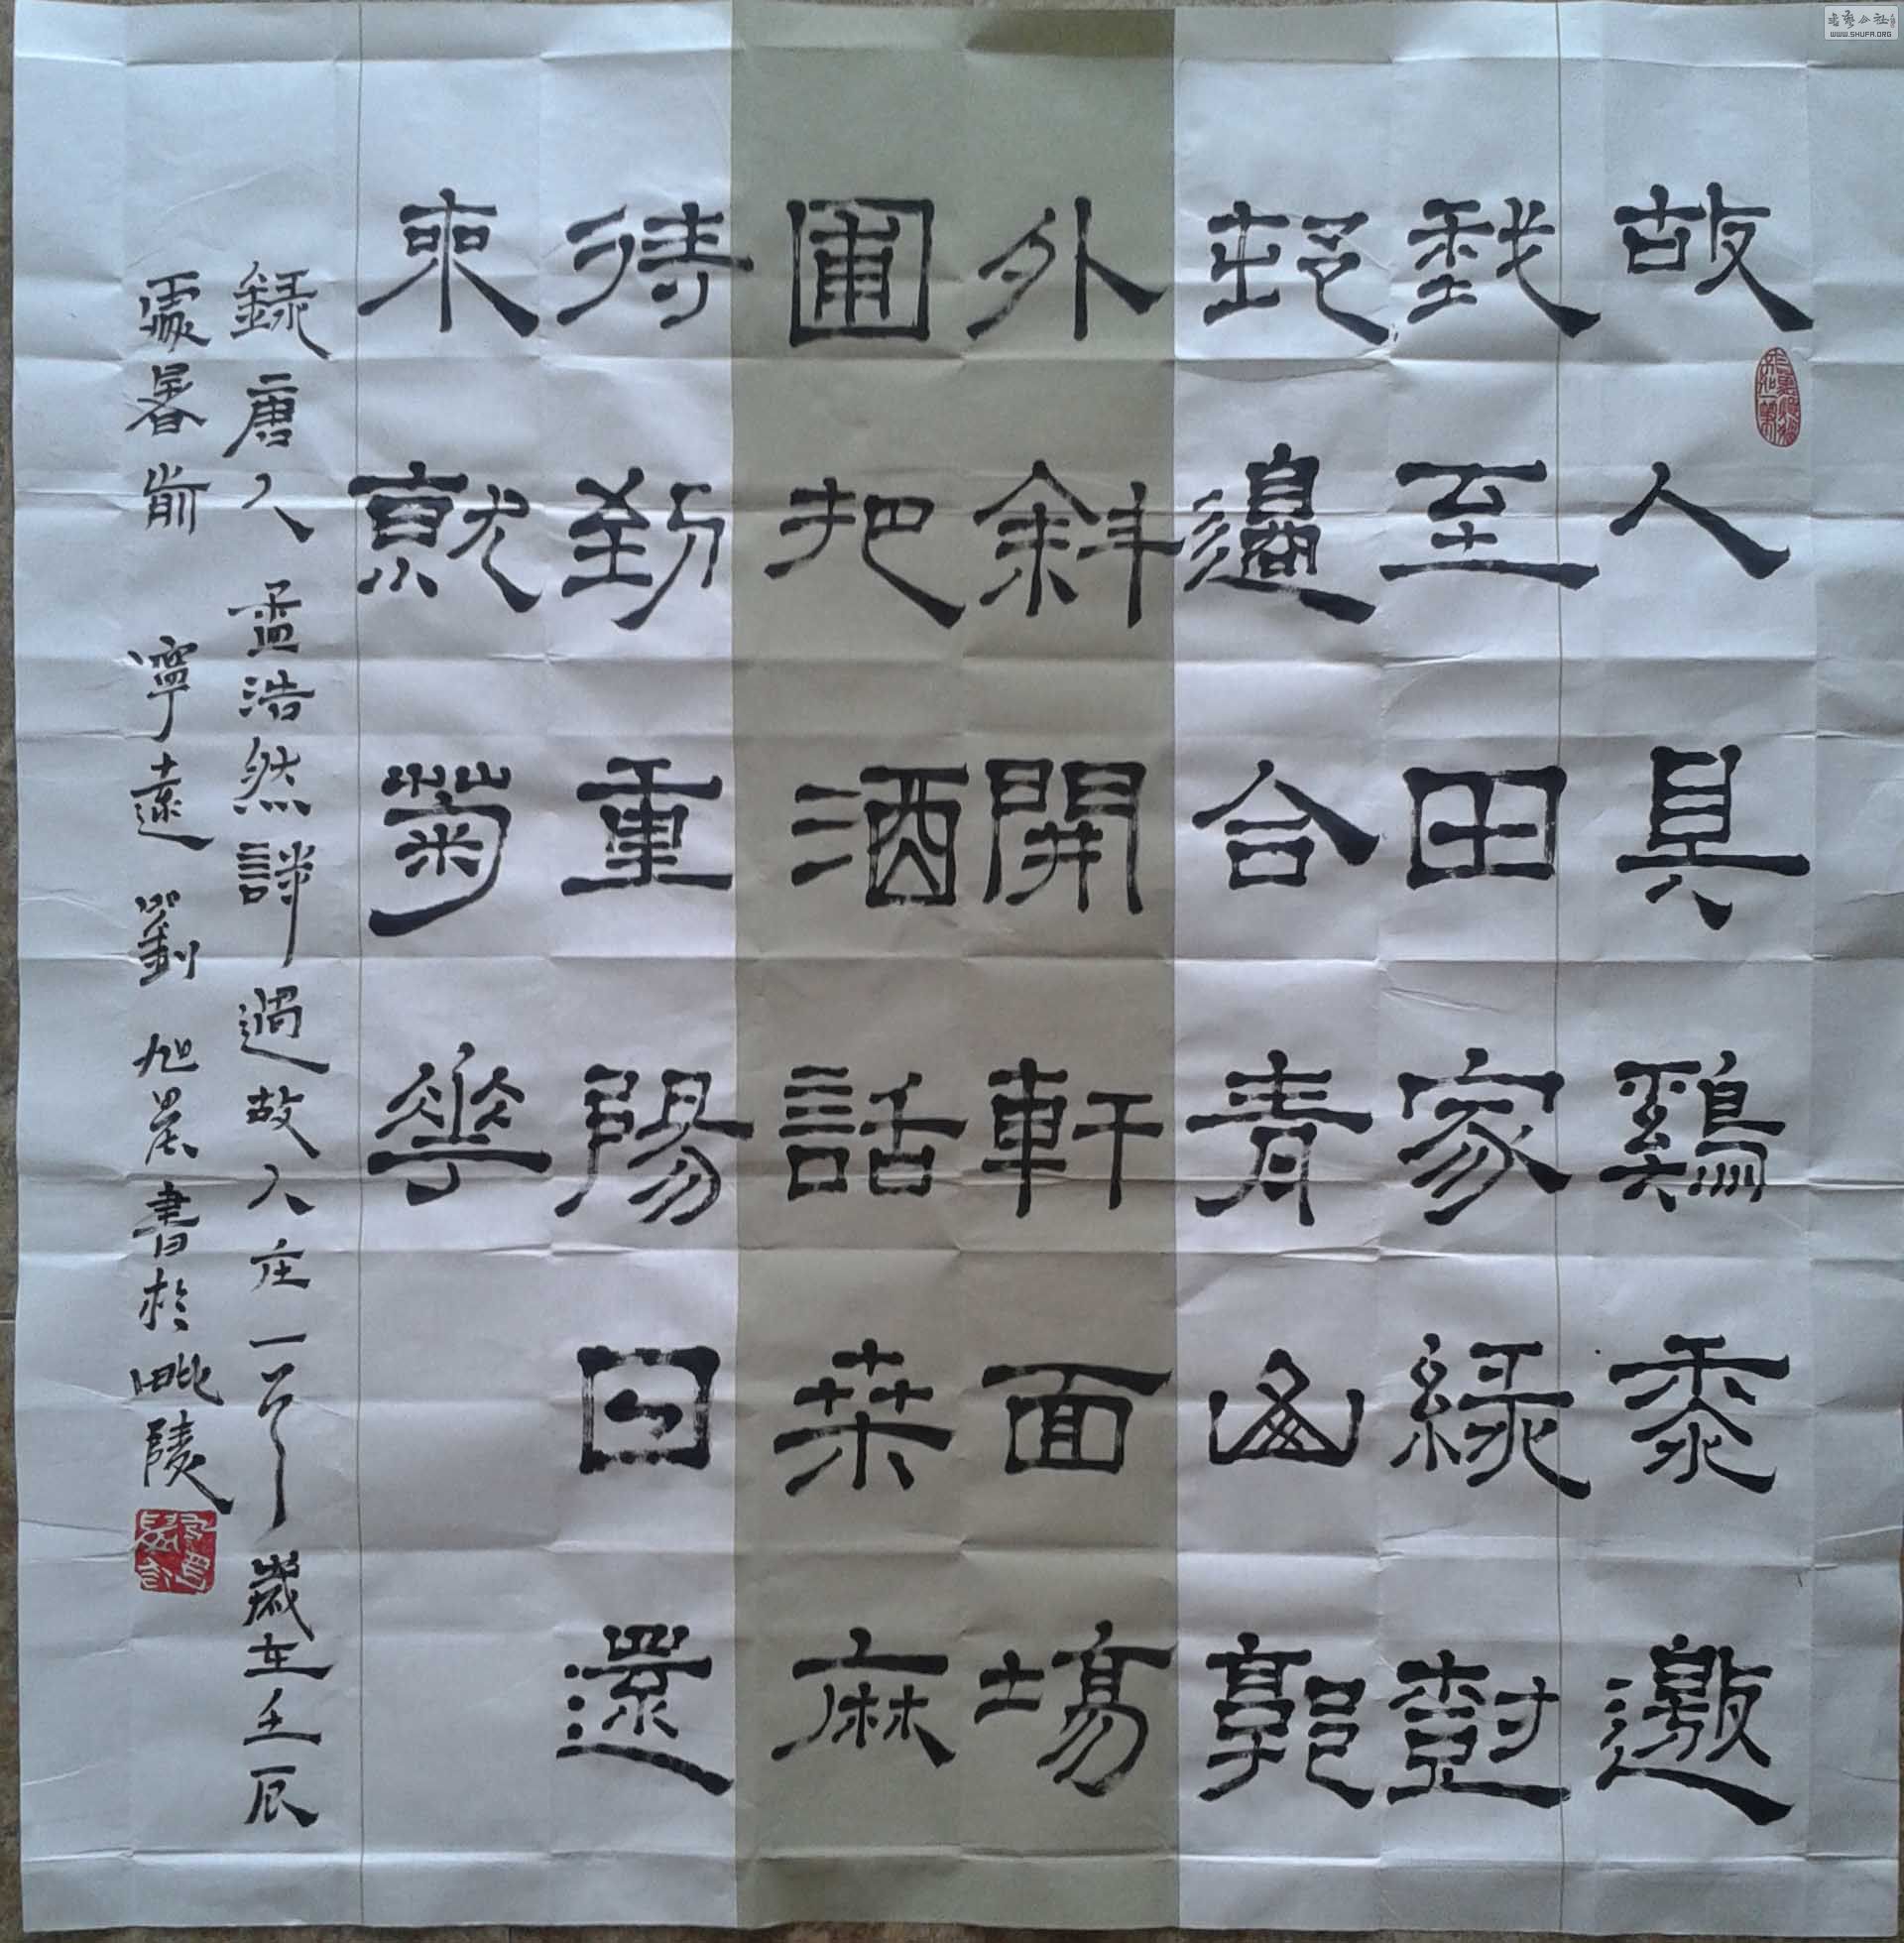 故人具鷄黍邀
我至田家緑樹
邨邊合青山郭
外斜開軒面場
圃把酒話桑麻
待到重陽日還
來就菊華
録唐人孟浩然詩過故人庄一首歲在壬辰
處暑前寧遠劉旭晨書於毗陵
WWW.SHUFA.ORG